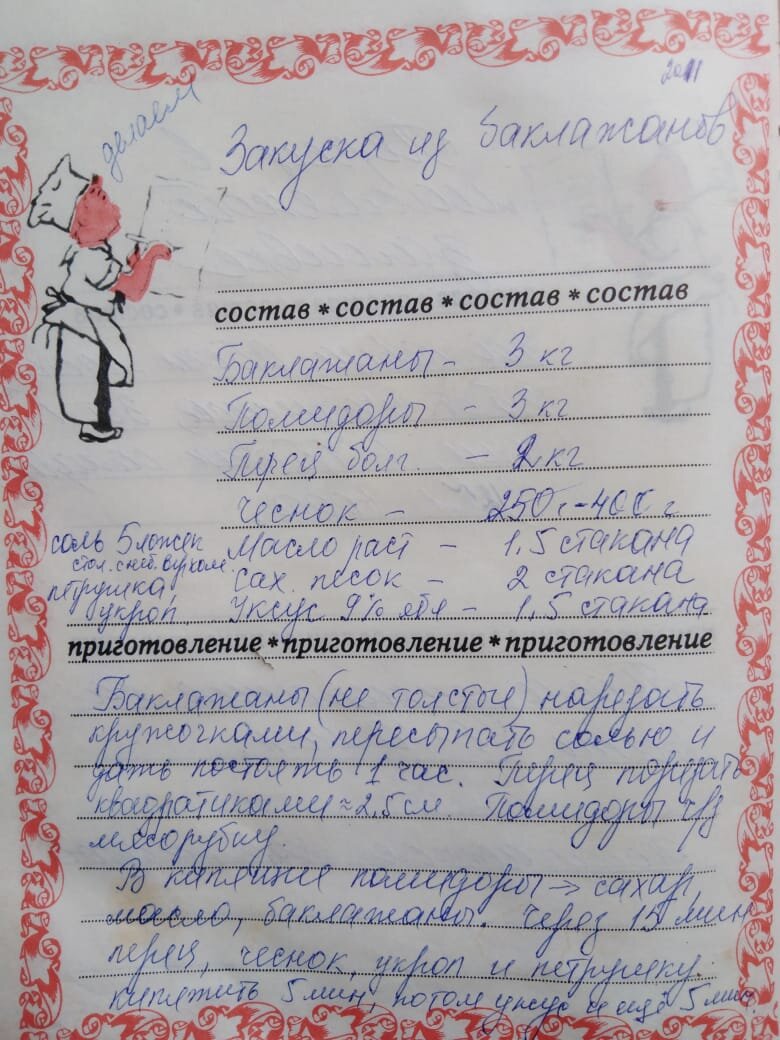 2011
делаем
Закуска из баклажанов
состав * состав * состав * состав
Баклажаны - 3 кг
Помидоры - 3 кг
Перец болг. - 2 кг
Чеснок - 250г-400 г
соль 5 ложек
стол. с неб. верхом.
петрушка,
укроп,
Масло раст - 1,5 стакана
Сах. песок - 2 стакана
Уксус 9% - 1,5 стакана
приготовление * приготовление * приготовление
Баклажаны (не толстые) нарезать
кружочками, пересыпать солью и
дать постоять 1 час. Перец порезать
квадратиками ≈ 2,5 см. Помидоры ч/з
мясорубку.
В кипящие помидоры → сахар,
масло, баклажаны. Через 15 мин
перец, чеснок, укроп и петрушку.
кипятить 5 мин, потом уксус и ещё 5 мин.